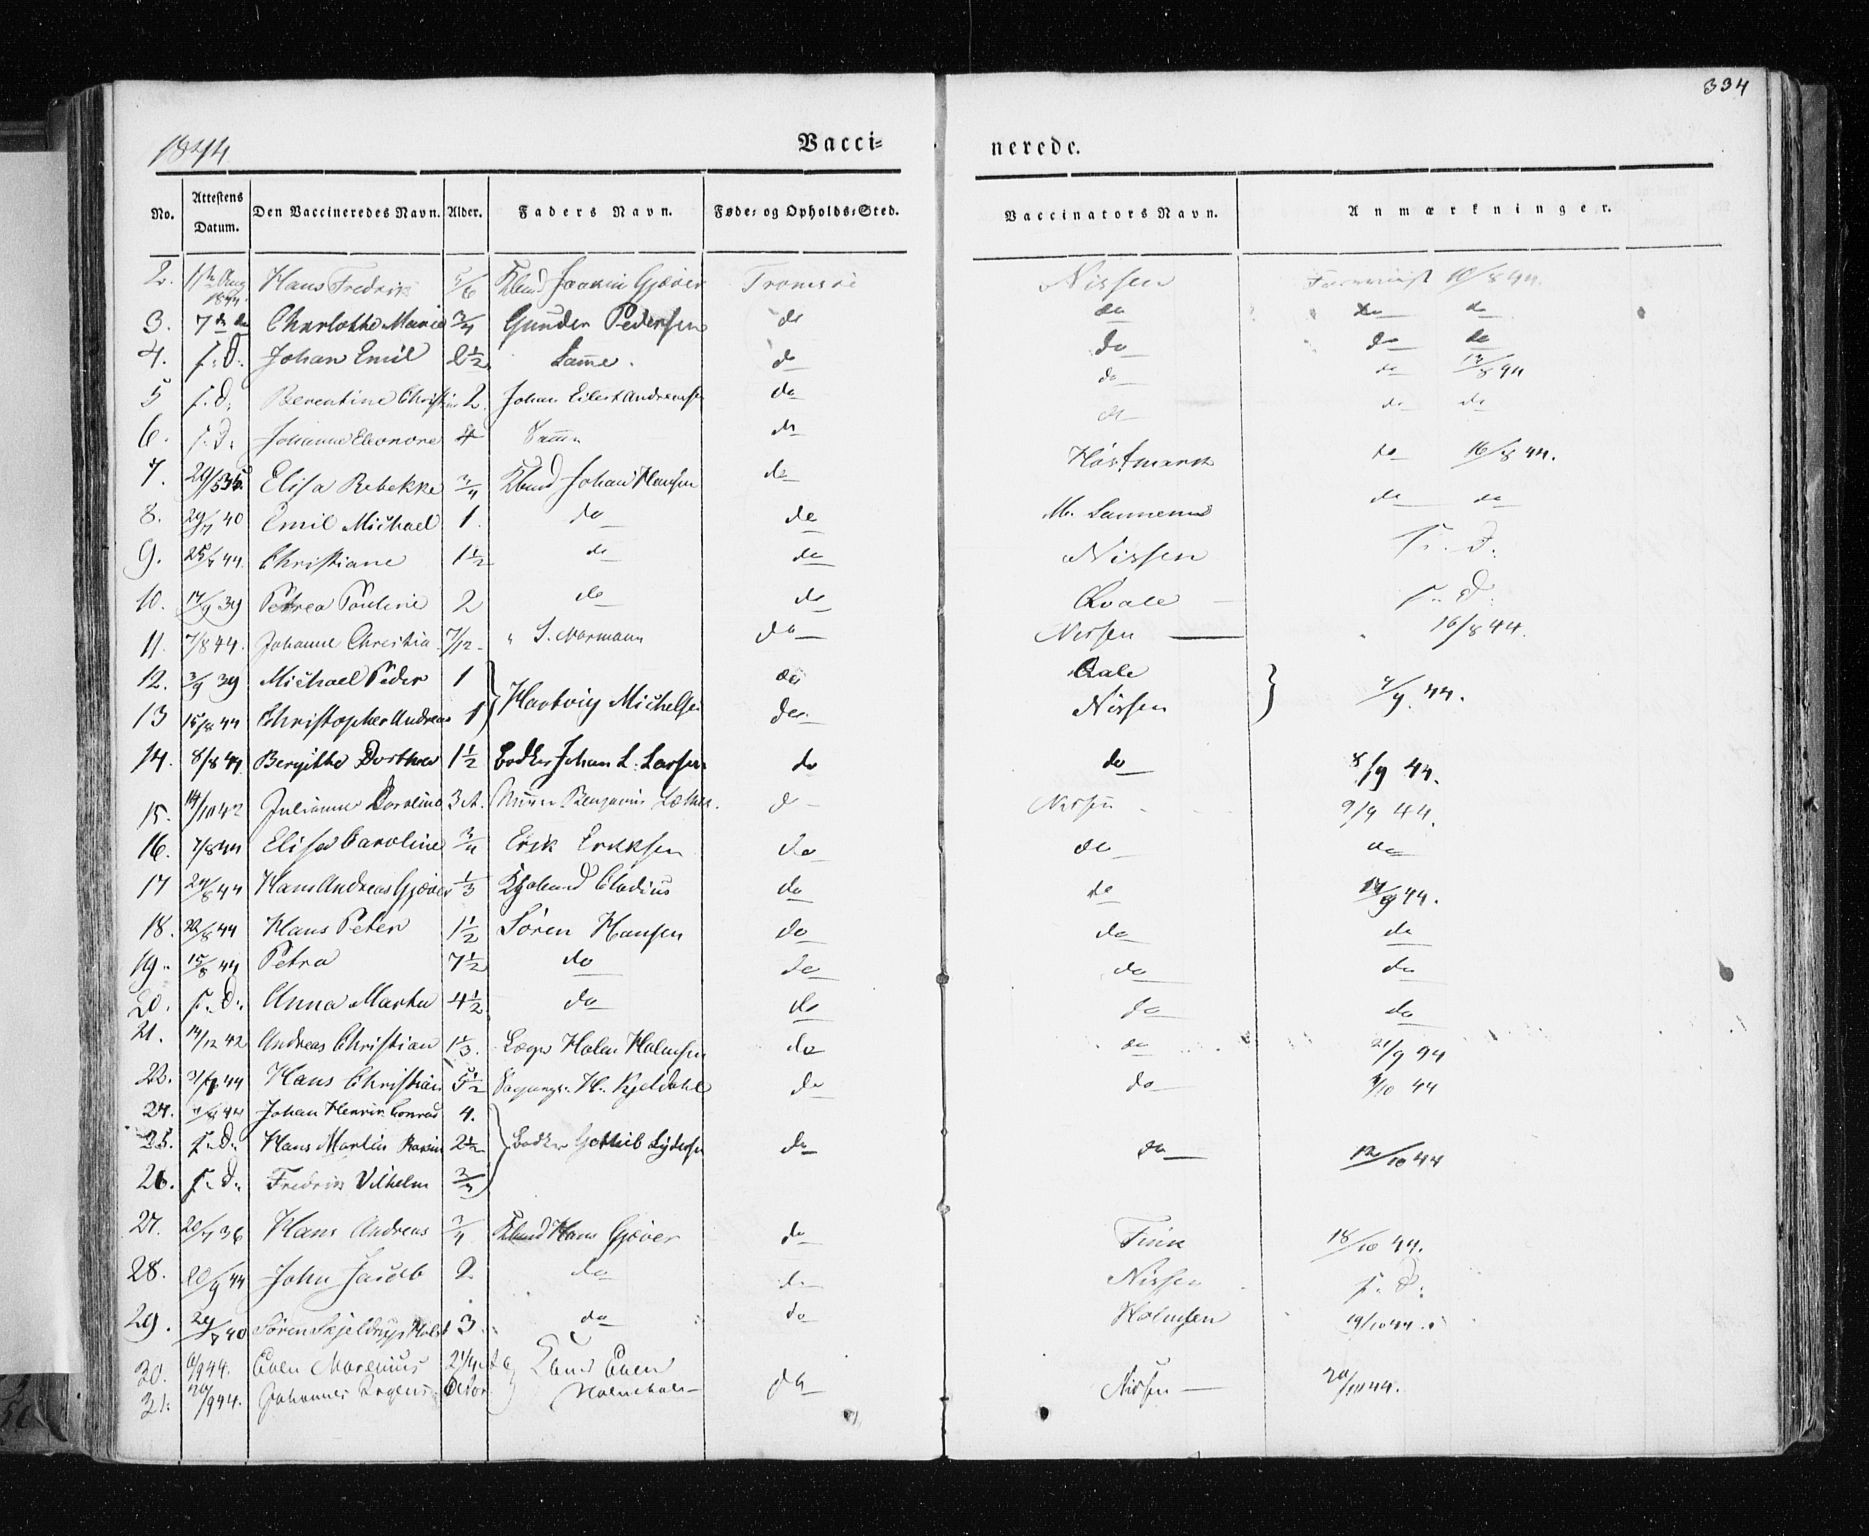 334
1844
Vacci= nerede.
No. Attestens Datum. Den Vaccineredes Navn. Alder. Faders Navn. Føde= og Opholds=Sted. Vaccinators Navn. Anmærkninger.
2. 11te Aug 1844 Hans Fredrik 5/6 Kbmd Joakim Gjæver Tromsöe Nissen 10/8 44.
3. 7 do do Charlotte Marie 3/4 Gunder Pedersen do do do do
4. s. D. Johan Emil 2 1/2 Samme. do do do do
5 s. d. Berentine Christine 2. Johan Eilert Andreasen do do do 13/8 44
6. s. d. Johanne Eleonore 4 Samme do do do do
7. Elisa Rebekke 3/4 Kbmd Johan Hansen do Høstmark do 16/8 44.
8. 29/7 40 Emil Michael 1. do do M. do do
9. 25/7 44. Christiane 1 1/2 do do Nissen s. d.
10. 17/9 39 Petrea Pauline 2 do do Qvale s. d.
11. 7/8 44. Johanne Christia 7/12 " S. Normann do Nissen 16/8 44.
12. 3/9 39 Michael Peder 1 Hartvig Michelsen do Qale 4/9. 44.
13 15/8 44 Christopher Andreas 1 do. Nissen
14. 8/8 44 Bergithe Dorthea 1 1/2 Bødker Johan L. Larsen do do 8/9 44.
15. 14/10 42 Julianne Caroline 3 A. Benjamin do Nissen 9/9 44.
16. 7/8 44 Elisa Caroline 3/4 Erik Erikksen do do do
17 24/8 44 Hans Andreas Gjæver 1/3 Kjøbmd Cladius do do 14/9 44.
18. 22/8 44 Hans Peter 1 1/2 Sören Hansen do do do
19. 15/8 44 Petra 7 1/2 do do do do
20. s. d. Anna Martha 4 1/2 do do do do
21. 14/12 42 Andreas Christian 1 1/3. Læge Holm Holmsen do do 21/9 44
22. Hans Christian 5 1/2 H. Kjeldahl do do 44
24. Johan Henrik Conrad 4.
25. s. D. Hans Martin 2 1/2 Bødker Gottlieb Lydersen do do 12/10 44
26. s. d. Fredrik Vilhelm 3/4
27. 20/7 36 Hans Andreas 3/4 Kbmd Hans Gjæver do Fink 18/10 44.
28. 20/9 44 John Jacob 2 do do Nissen s. d.
29. 29/7 40 Sören Skjeldrup Holst 3 do do Holmsen 19/10 44.
30. 44. Even Marenius 2 1/4 Kbmd Even
31. 20/9 44. Johannes Holmboe do Nissen 20/10 44.